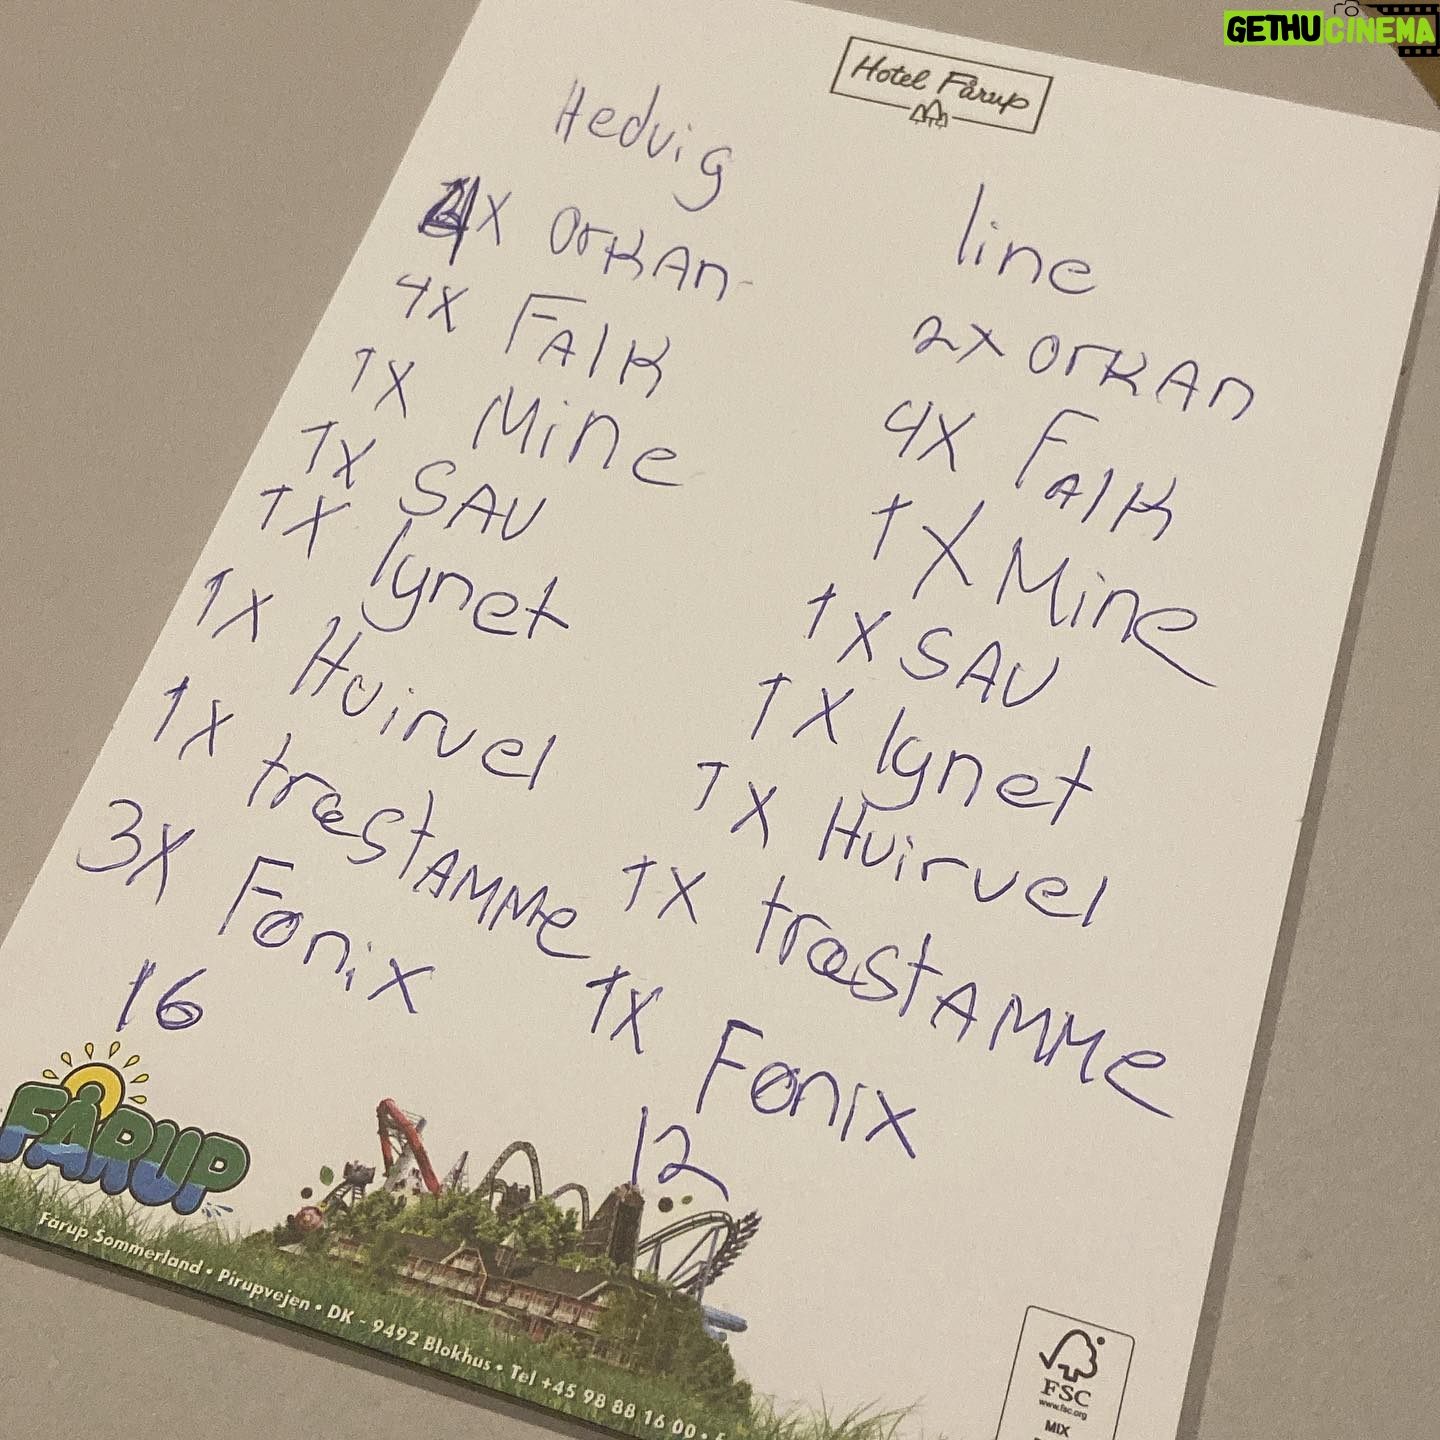 GETHUCINEMA
Hotel Fårup
Hedvig
4X OrKAn
4X FAlK
1X Mine
1X SAV
1X lynet
1X Hvirvel
1X træstAMMe
3X Fønix
16
line
2X OrKAn
4X FAlK
1X Mine
1X SAV
1X lynet
1X Hvirvel
1X træstAMMe
1X Fønix
12
FÅRUP
Fårup Sommerland • Pirupvejen • DK - 9492 Blokhus • Tel +45 98 88 16 00 •
FSC
www.fsc.org
MIX